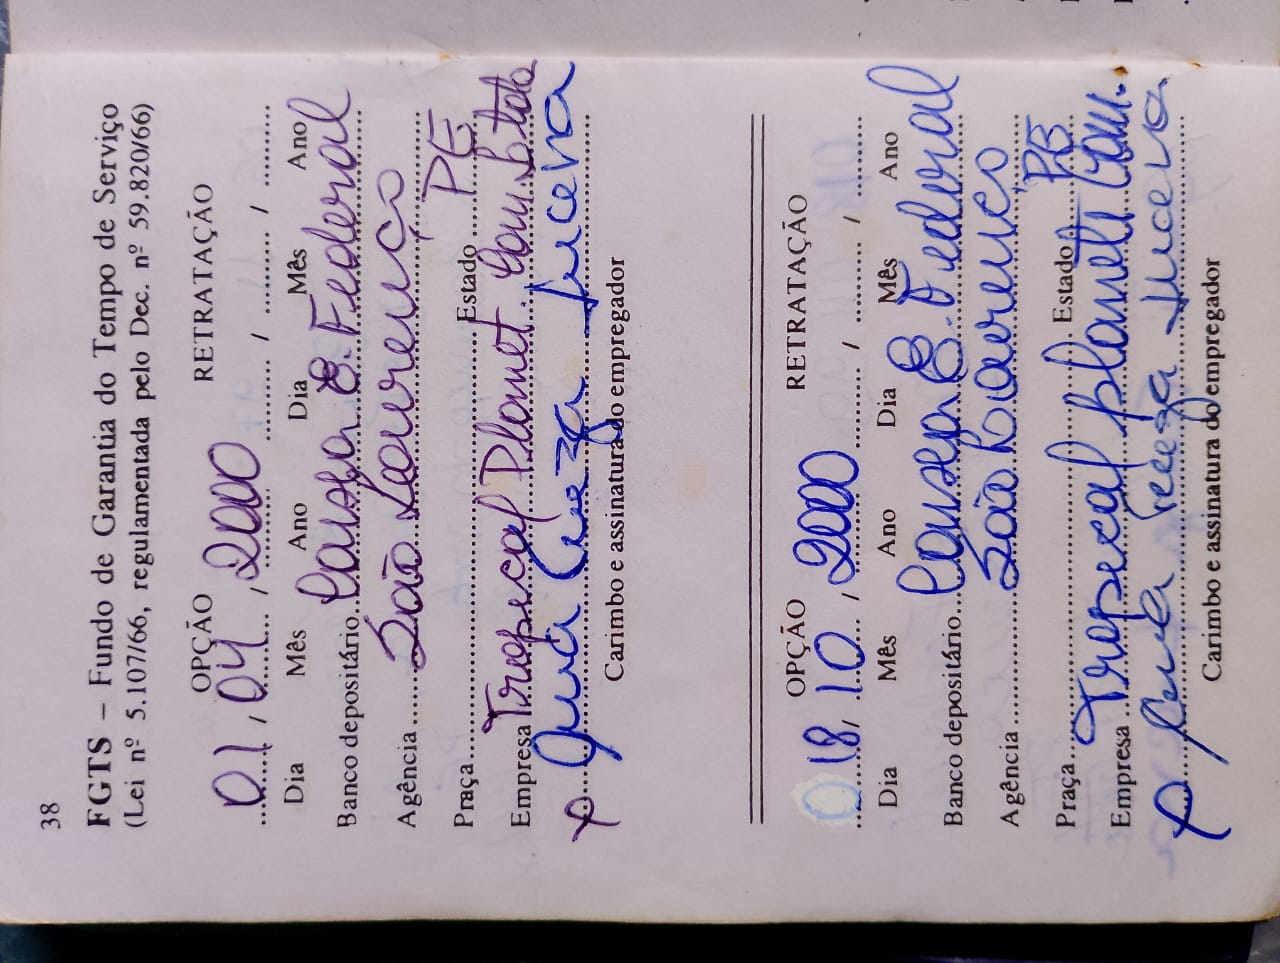 38
FGTS – Fundo de Garantia do Tempo de Serviço
(Lei nº 5.107/66, regulamentada pelo Dec. nº 59.820/66)
OPÇÃO RETRATAÇÃO
01 / 04 / 2000 ........ / ........ / ........
Dia Mês Ano Dia Mês Ano
Banco depositário Caixa E. Federal
Agência São Lourenço
Praça Estado PE
Empresa Tropical Planet. Com. Ltda
Lucena
Carimbo e assinatura do empregador
OPÇÃO RETRATAÇÃO
18 / 10 / 2000 ........ / ........ / ........
Dia Mês Ano Dia Mês Ano
Banco depositário Caixa E. Federal
Agência São Lourenço
Praça Estado PE
Empresa Tropical planett Com.
Lucena
Carimbo e assinatura do empregador